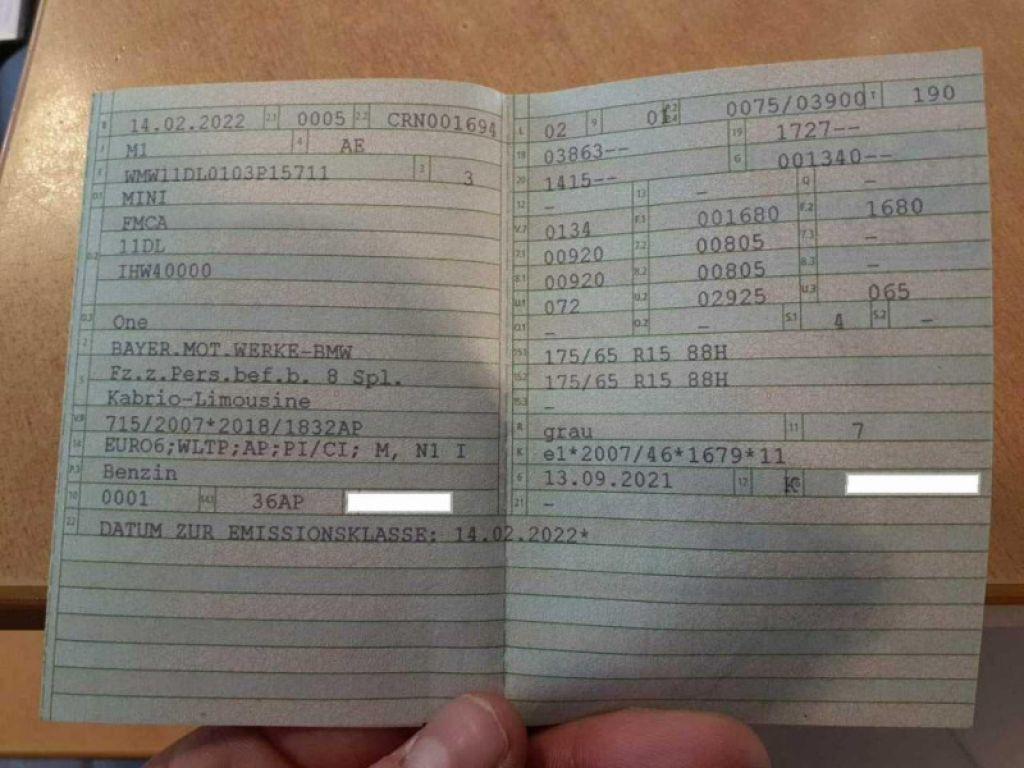 B 14.02.2022 2.1 0005 2.2 CRN001694
J M1 4 AE
E WMW11DL0103P15711 3 3
D.1 MINI
FMCA
D.2 11DL
IHW40000
D.3 One
2 BAYER.MOT.WERKE-BMW
5 Fz.z.Pers.bef.b. 8 Spl.
Kabrio-Limousine
V.9 715/2007*2018/1832AP
14 EURO6;WLTP;AP;PI/CI; M, N1 I
P.3 Benzin
10 0001 14.1 36AP
22 DATUM ZUR EMISSIONSKLASSE: 14.02.2022*
L 02 9 01 P.2 P.4 0075/03900 T 190
18 03863-- 19 1727--
20 1415-- G 001340--
12 - 13 - Q -
V.7 0134 F.1 001680 F.2 1680
7.1 00920 7.2 00805 7.3 -
8.1 00920 8.2 00805 8.3 -
U.1 072 U.2 02925 U.3 065
O.1 - O.2 - S.1 4 S.2 -
15.1 175/65 R15 88H
15.2 175/65 R15 88H
15.3 -
R grau 11 7
K e1*2007/46*1679*11
6 13.09.2021 17 K 16
21 -